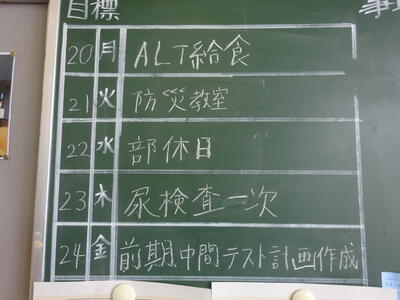 目標
20 月 ALT給食
21 火 防災教室
22 水 部休日
23 木 尿検査一次
24 金 前期中間テスト計画作成